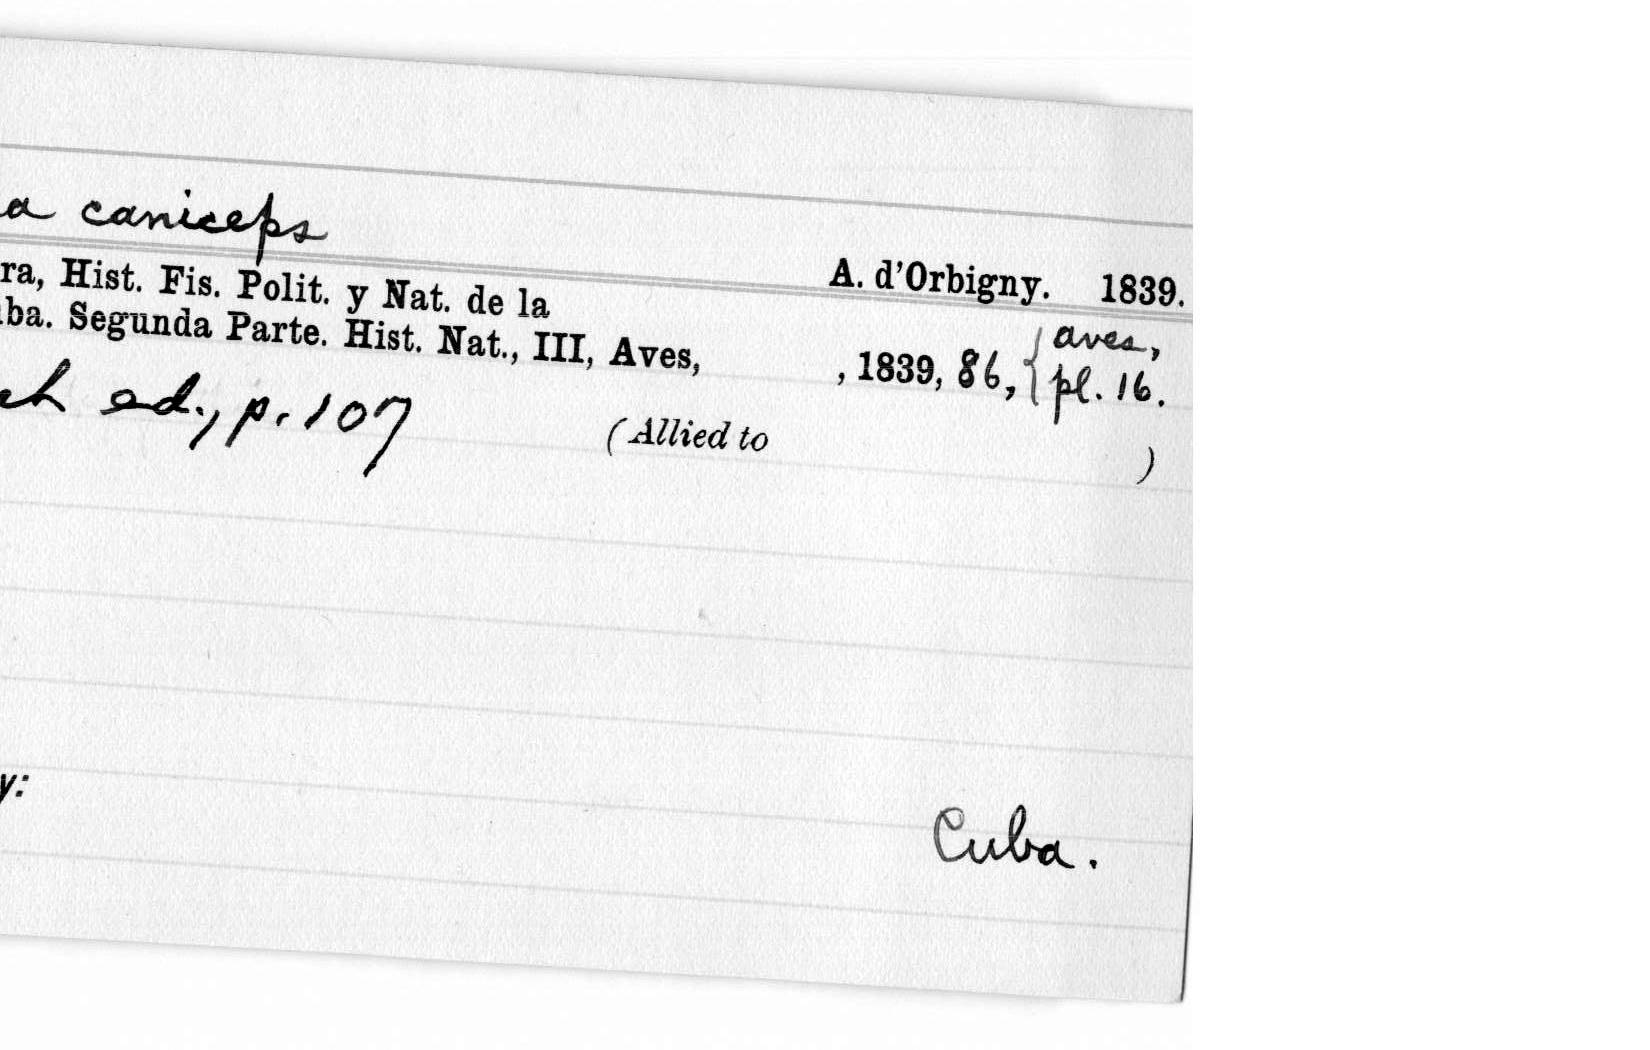 a caniceps
A. d'Orbigny. 1839.
ra, Hist. Fis. Polit. y Nat. de la
ba. Segunda Parte. Hist. Nat., III, Aves, , 1839, 86, { aves,
pl. 16.
ch ed., p. 107
(Allied to )
y:
Cuba.